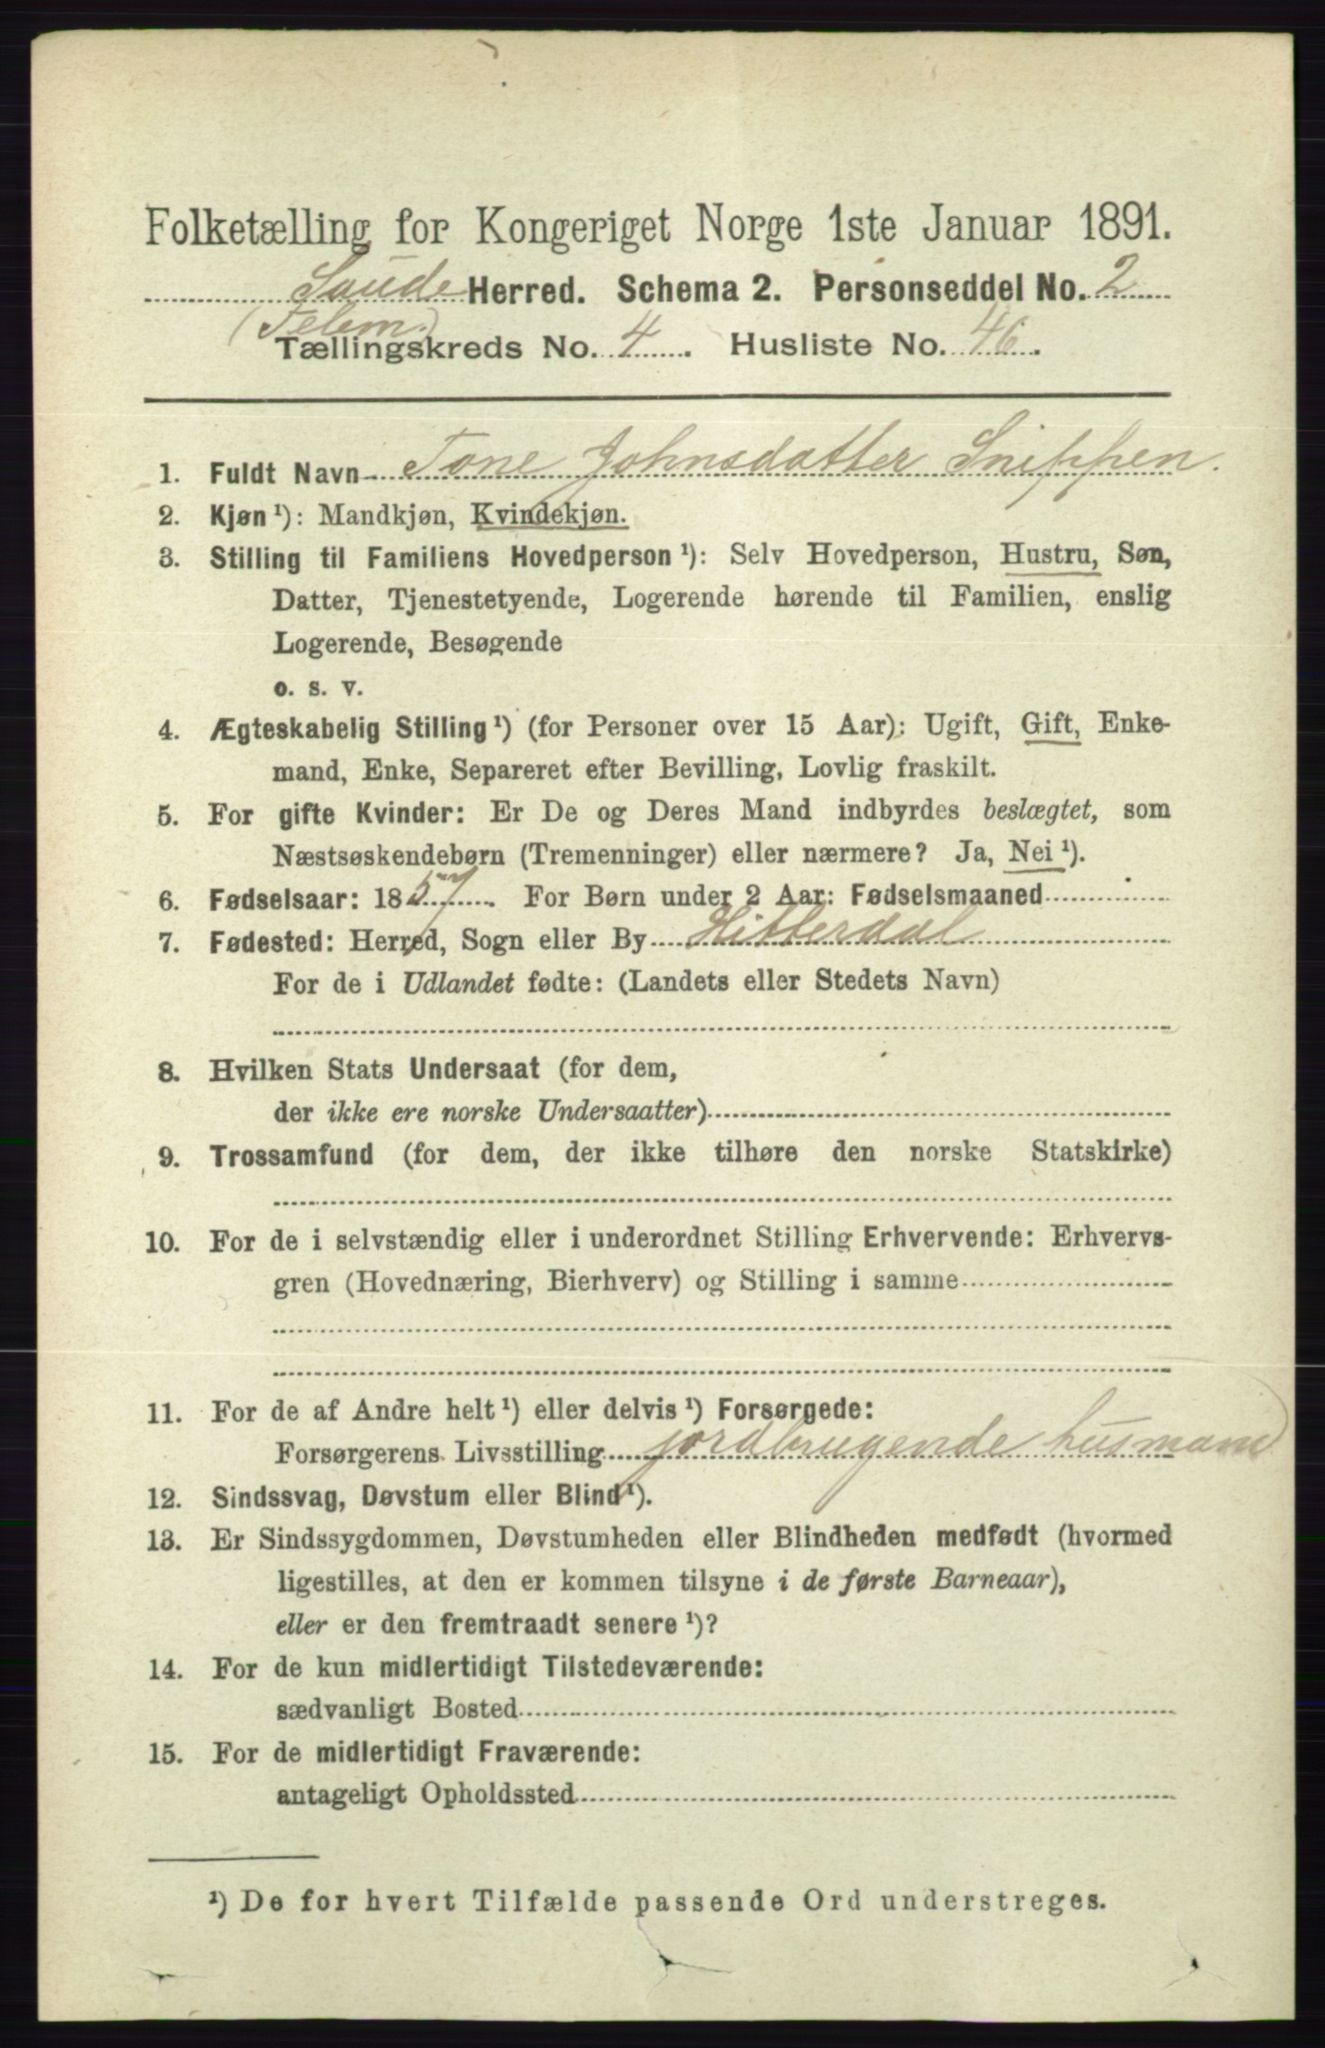 Folketælling for Kongeriget Norge 1ste Januar 1891.
Saude Herred. Schema 2. Personseddel No. 2
(Telem.)
Tællingskreds No. 4. Husliste No. 46.
1. Fuldt Navn Tone Johnsdatter Snippen.
2. Kjøn ¹): Mandkjøn, Kvindekjøn.
3. Stilling til Familiens Hovedperson ¹): Selv Hovedperson, Hustru, Søn,
Datter, Tjenestetyende, Logerende hørende til Familien, enslig
Logerende, Besøgende
o. s. v.
4. Ægteskabelig Stilling ¹) (for Personer over 15 Aar): Ugift, Gift, Enke-
mand, Enke, Separeret efter Bevilling, Lovlig fraskilt.
5. For gifte Kvinder: Er De og Deres Mand indbyrdes beslægtet, som
Næstsøskendebørn (Tremenninger) eller nærmere? Ja, Nei ¹).
6. Fødselsaar: 1857. For Børn under 2 Aar: Fødselsmaaned
7. Fødested: Herred, Sogn eller By Hitterdal
For de i Udlandet fødte: (Landets eller Stedets Navn)
8. Hvilken Stats Undersaat (for dem,
der ikke ere norske Undersaatter)
9. Trossamfund (for dem, der ikke tilhøre den norske Statskirke)
10. For de i selvstændig eller i underordnet Stilling Erhvervende: Erhvervs-
gren (Hovednæring, Bierhverv) og Stilling i samme
11. For de af Andre helt ¹) eller delvis ¹) Forsørgede:
Forsørgerens Livsstilling jordbrugende husmand
12. Sindssvag, Døvstum eller Blind ¹).
13. Er Sindssygdommen, Døvstumheden eller Blindheden medfødt (hvormed
ligestilles, at den er kommen tilsyne i de første Barneaar),
eller er den fremtraadt senere ¹)?
14. For de kun midlertidigt Tilstedeværende:
sædvanligt Bosted
15. For de midlertidigt Fraværende:
antageligt Opholdssted
¹) De for hvert Tilfælde passende Ord understreges.